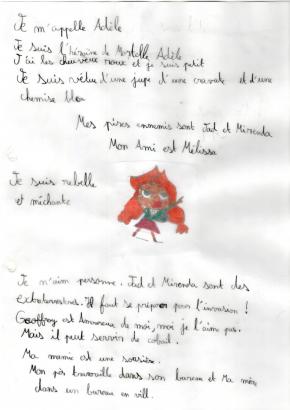 Je m'appelle Adèle
Je suis l'héroïne de Mortelle Adèle
J'ai les cheuveux roux et je suis petit
Je suis vêtue d'une jupe d'une cravate et d'une
chemise bleu
Mes pires ennemis sont Jad et Miranda
Mon Ami est Mélissa
Je suis rebelle
et méchante
Je n'aim personne. Jad et Miranda sont des
extraterrestres. Il faut se préparer pour l'invasion !
Geoffroy est Amoureux de moi, moi je l'aime pas.
Mais il peut servir de cobail.
Ma mamie est une sorcière.
Mon pès travaille dans son bureau et Ma mère
dans un bureau en vill.